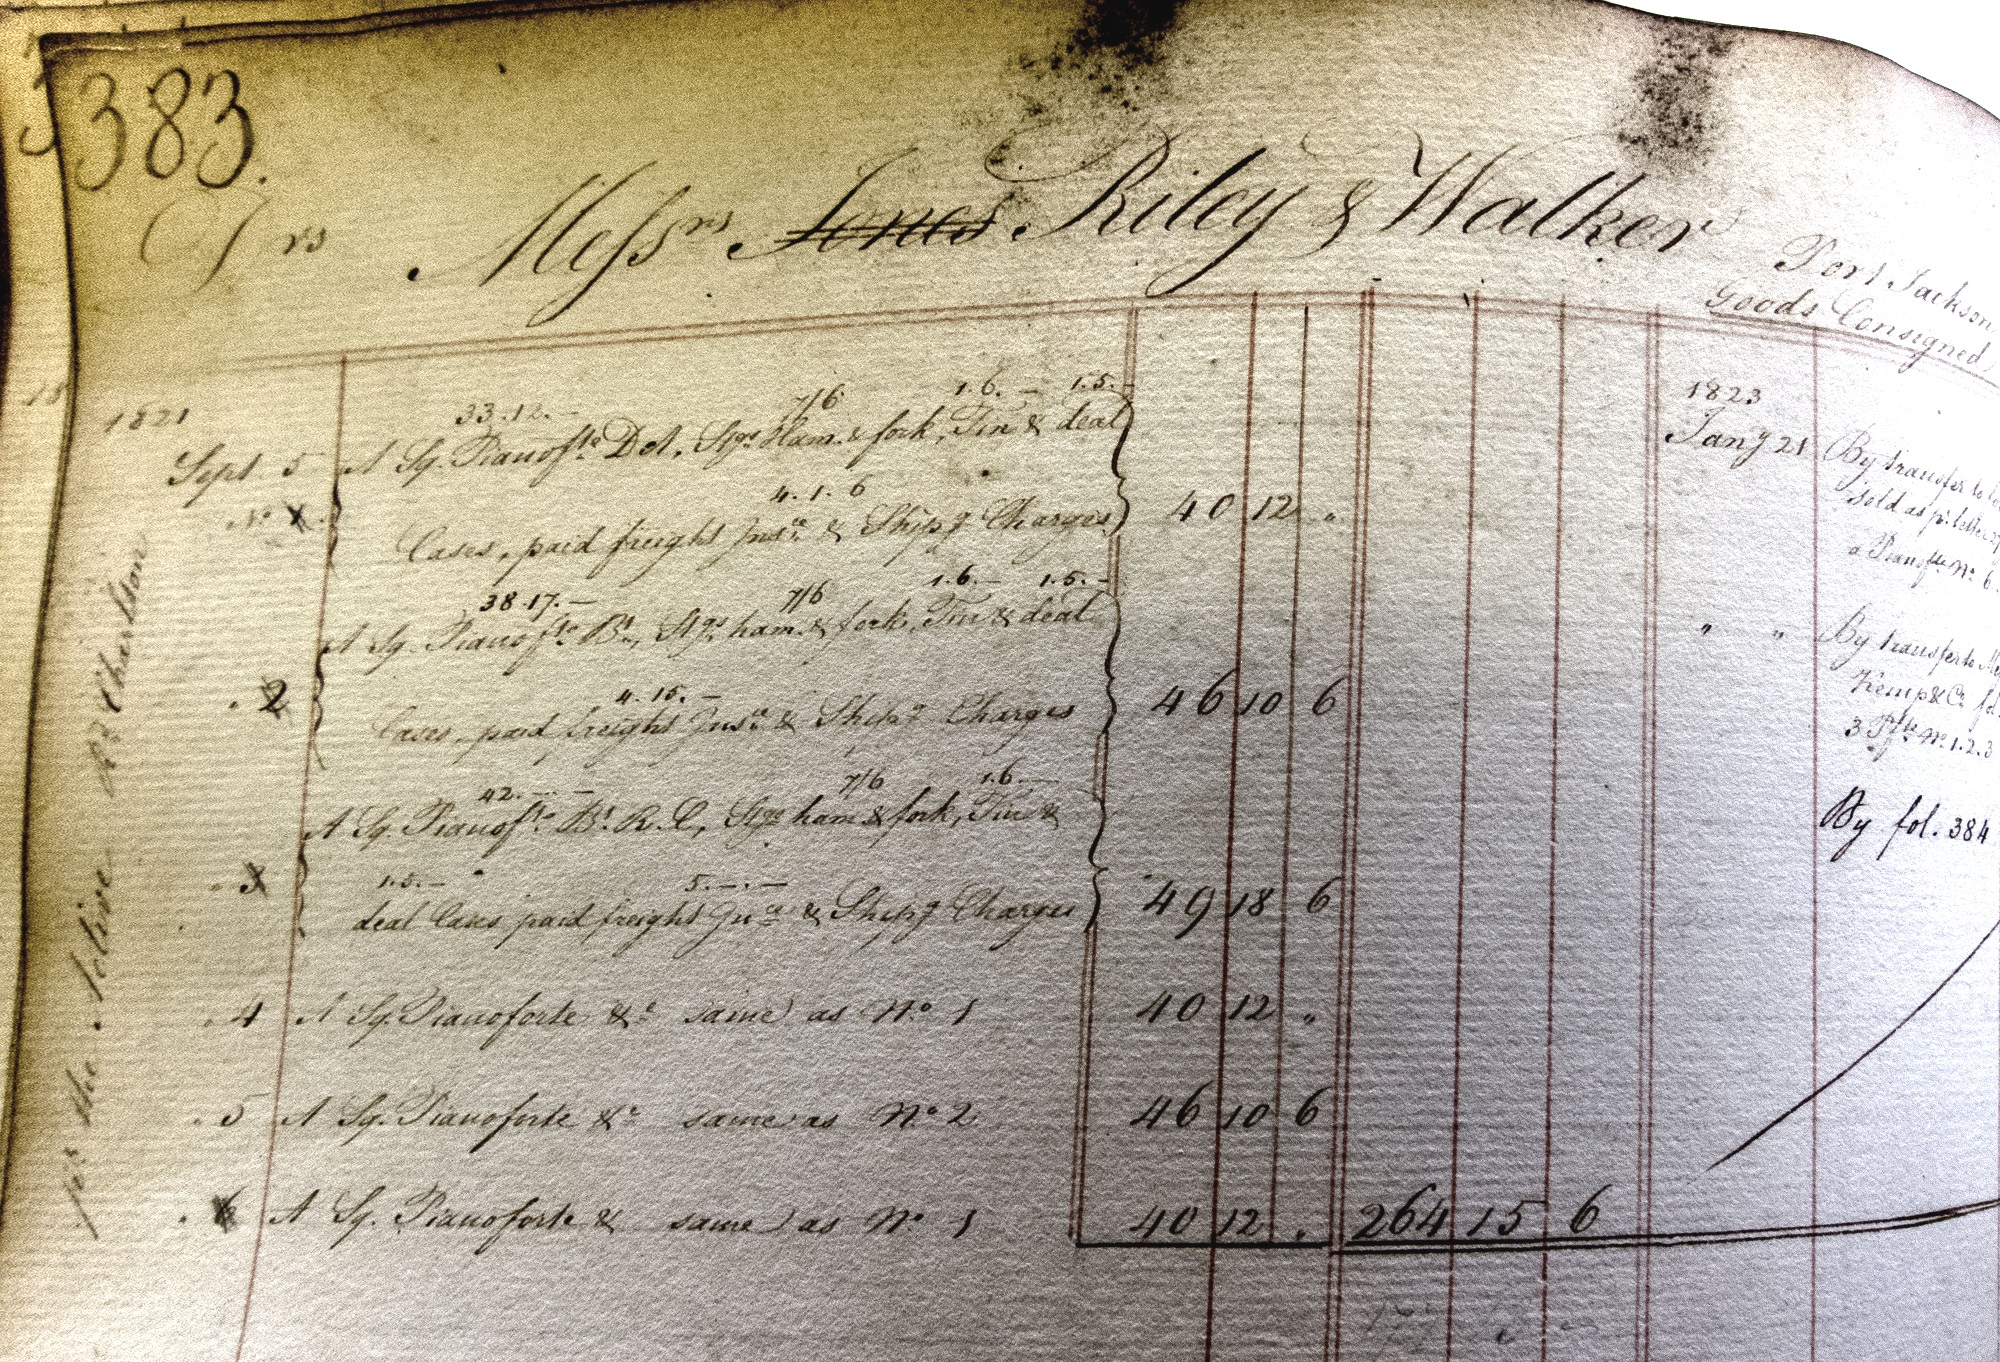 383.
Drs Messrs Jones Riley & Walker Port Jackson
Goods Consigned
1821
33.12.— 7/6 1.6.— 1.5.—
Sept. 5 A Sq. Pianofte Dd, Stgs Ham. & fork, Tin & deal
No 1. 4.1.6
Cases, paid freight Insce & Shipg Charges 40 12 "
38.17.— 7/6 1.6.— 1.5.—
A Sq. Pianofte Bt, Stgs ham. & fork, Tin & deal
2 4.15.—
Cases, paid freight Insce & Shipg Charges 46 10 6
42.—.— 7/6 1.6.—
A Sq. Pianofte Bt. R.C, Stgs ham & fork, Tin &
3 1.5.— 5.—.—
deal Cases paid freight Insce & Shipg Charges 49 18 6
4 A Sq. Pianoforte &c same as No 1 40 12 "
5 A Sq. Pianoforte &c same as No 2 46 10 6
6 A Sq. Pianoforte & same as No 1 40 12 " 264 15 6
per the
1823
Jany 21 By transfer to
sold as pr. letter
a Pianofte No 6.
" " By transfer to
Kemp & Co
3 Pftes No 1.2.3
By fol. 384